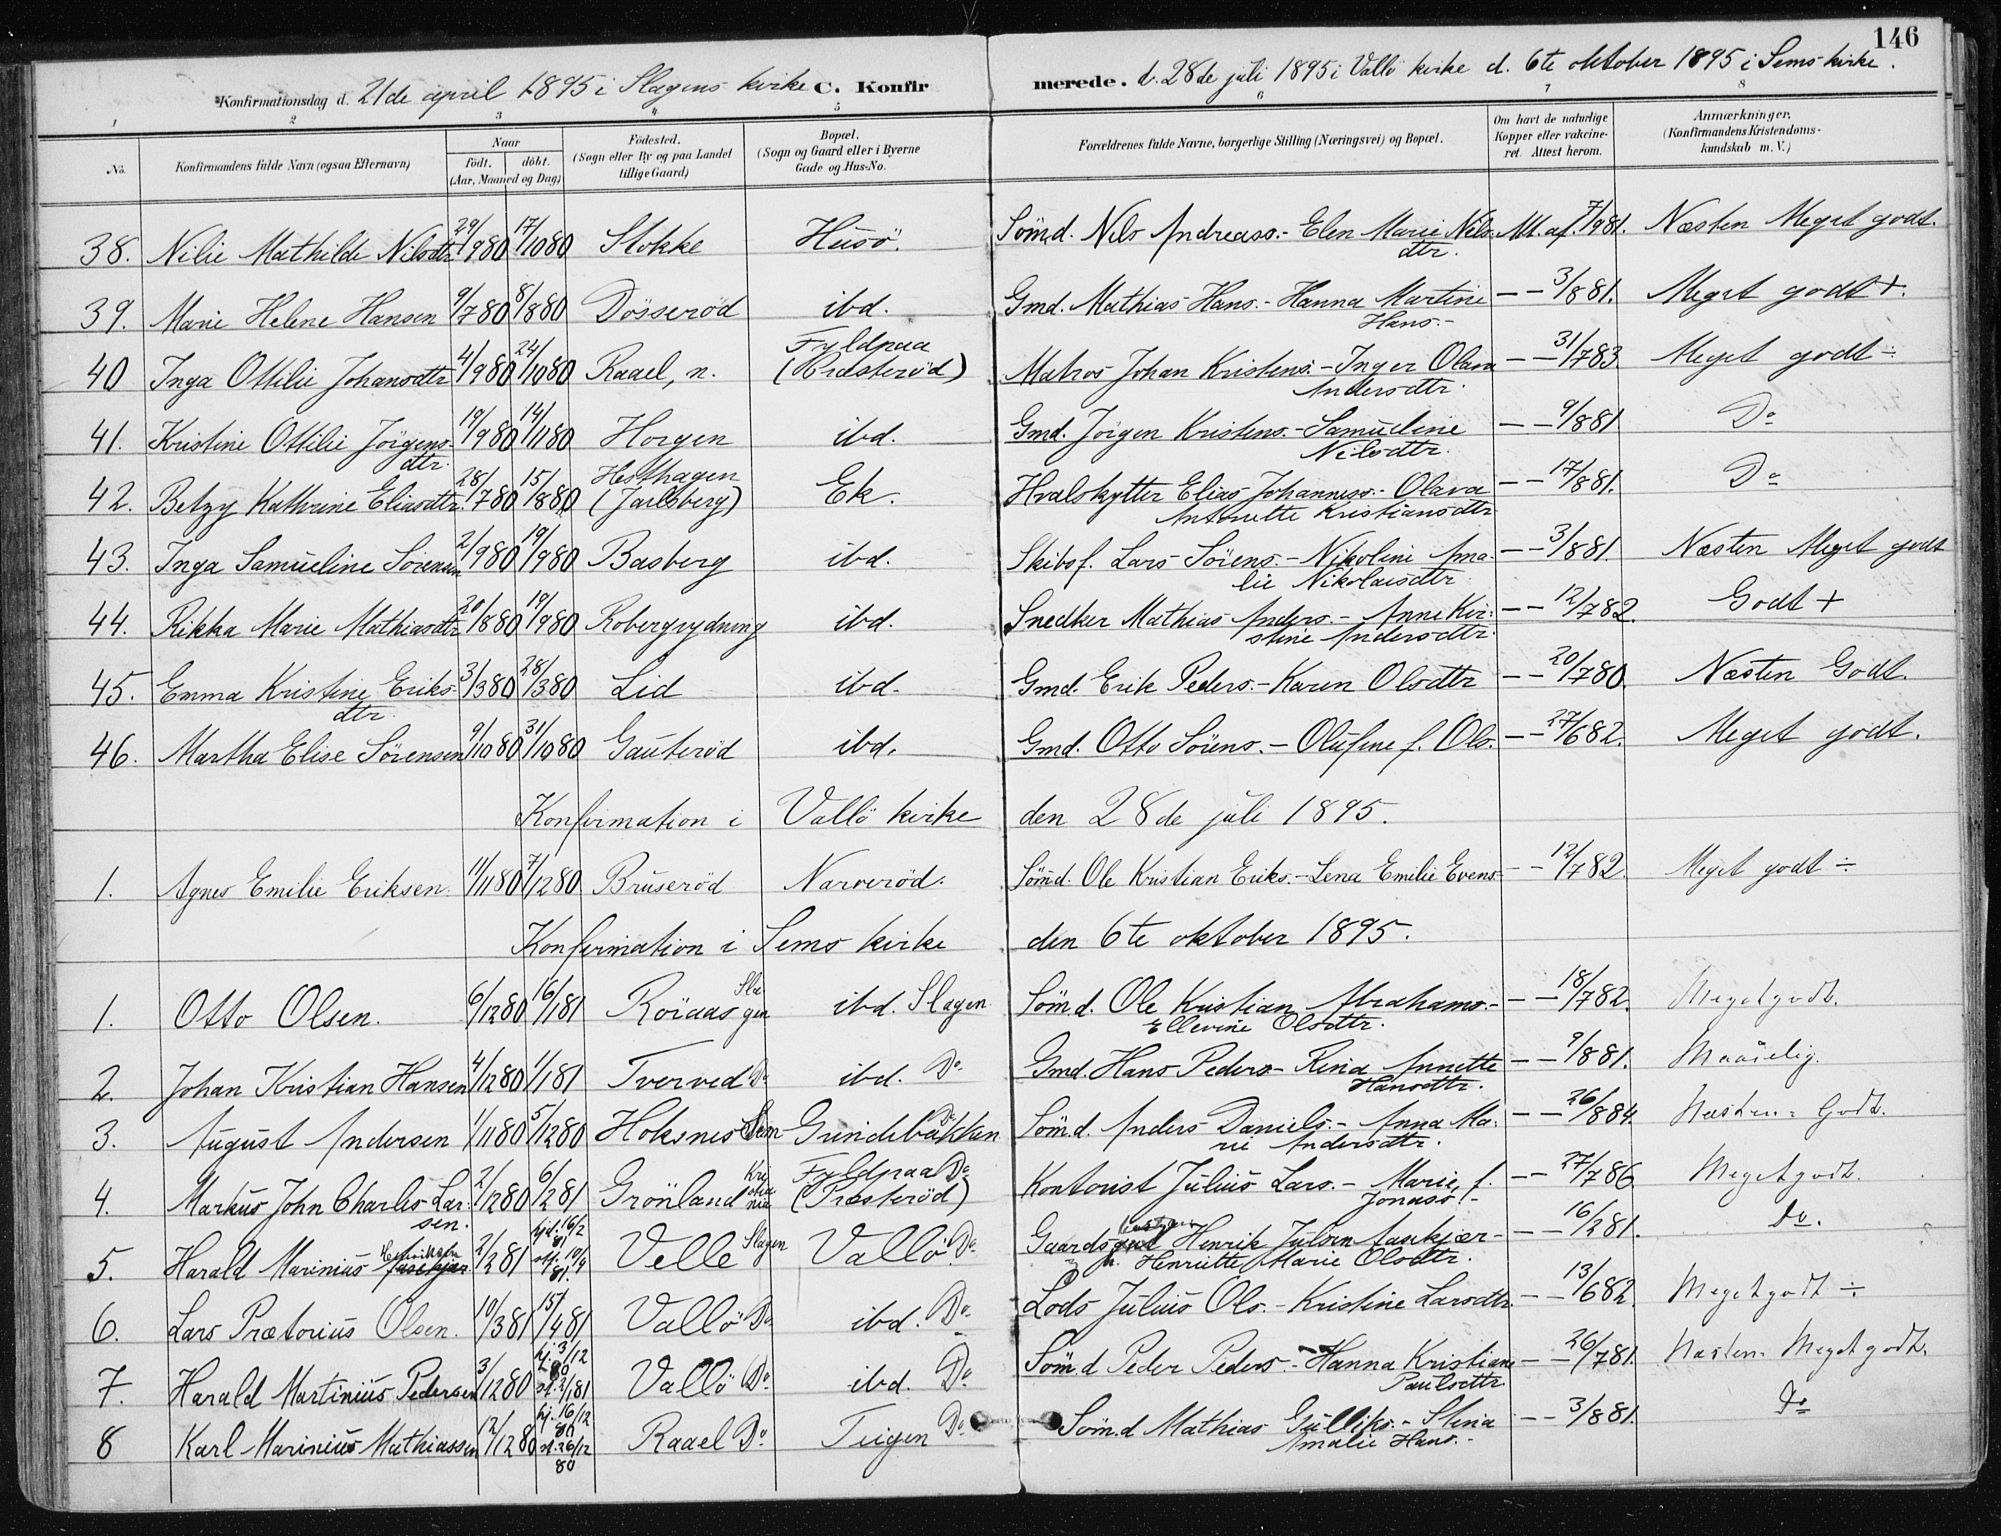 146
Konfirmationsdag d. 21de april 1895 i Slagens kirke C. Konfirmerede. d. 28de juli 1895 i Vallö kirke d. 6te oktober 1895 i Sems kirke.
1 2 3 4 5 6 7 8
No. Konfirmandens fulde Navn (ogsaa Efternavn) Naar født. døbt. (Aar, Maaned og Dag) Fødested. (Sogn eller By og paa Landet tillige Gaard) Bopæl. (Sogn og Gaard eller i Byerne Gade og Hus-No. Forældrenes fulde Navne, borgerlige Stilling (Næringsvei) og Bopæl. Om havt de naturlige Kopper eller vakcineret. Attest herom. Anmærkninger. (Konfirmandens Kristendomskundskab m. V.)
38. Nilie Mathilde Nilsdtr 29/980 17/1080 Stokke Husö. Sömd. Nils Andreass. - Elen Marie Nilsdtr. Att. af. 7/981. Næsten Meget godt.
39. Marie Helene Hansen 9/780 8/880 Dösseröd ibd. Gmd. Mathias Hans. - Hanna Martine Hans. - — — 3/881. Meget godt +.
40 Inga Ottilie Johansdtr 4/980 24/1080 Raael, n. Fyldpaa (Præsteröd) Matros Johan Kristens. - Inger Olava Andersdtr. — — 31/783. Meget godt ÷
41. Kristine Ottilie Jörgensdtr. 19/980 14/1180 Horgen ibd. Gmd. Jörgen Kristens. - Samueline Nilsdtr. — — 9/881 Do
42. Betzy Kathrine Eliasdtr. 28/780 15/880 Hesthagen (Jarlsberg) Ek. Hvalskytter Elias Johanness. - Olava Antonette Kristiansdtr — — 17/881. Do
43. Inga Samueline Sörensen 2/980 19/980 Basberg ibd. Skibsf. Lars Sörens. - Nikoline Amalie Nikolaisdtr — — 3/881. Næsten Meget godt
44. Rikka Marie Mathiasdtr 20/880 19/980 Robergrydning ibd. Snedker Mathias Anders. - Anne Kirstine Andersdtr. — — 12/782. Godt +
45. Emma Kristine Eriksdtr. 3/380 28/380 Lid ibd. Gmd. Erik Peders. - Karen Olsdtr — — 20/780. Næsten Godt.
46. Martha Elise Sörensen 9/1080 31/1080 Gauteröd ibd. Gmd. Otto Sörens. - Olufine f. Ols. — — 27/682. Meget godt.
Konfirmation i Vallö kirke den 28de juli 1895.
1. Agnes Emilie Eriksen. 11/1180 7/1280 Bruseröd Narveröd. Sömd. Ole Kristian Eriks. - Lena Emilie Evens. — — 12/782. Meget godt ÷
Konfirmation i Sems kirke den 6te oktober 1895.
1. Otto Olsen. 6/1280 16/181 Röiaas Slagen ibd. Slagen Sömd. Ole Kristian Abrahams. - Ellevine Olsdtr. — — 18/782. Meget godt.
2. Johan Kristian Hansen 4/1280 1/181 Tverved Do ibd. Do Gmd. Hans Peders. - Rina Annette Hansdtr. — — 9/881. Maadelig.
3. August Andersen 1/1180 5/1280 Hoksnes Sem Grindebakken Sömd. Anders Daniels. - Anna Marie Andersdtr. — — 26/884. Næsten Godt.
4. Markus John Charles Larsen. 2/1280 6/281 Grönland Kristiania Fyldpaa Do (Præsteröd) Kontorist Julius Lars. - Marie, f. Jonass. - — — 27/786 Meget godt.
5. Harald Marinius Henriksen 2/281 hjd. 16/2 81 st. 10/9 81. Velle Slagen Vallö. Do Gaards Henrik Julsen - h. Henriette Marie Olsdtr. — — 16/281. Do.
6. Lars Prætorius Olsen. 10/381 15/481 Vallö Do ibd. Do Lods Julius Ols. - Kristine Larsdtr. — — 13/682. Meget godt ÷
7. Harald Martinius Pedersen 3/1280 hj. 3/12 80 st. 2/181 Vallö Do ibd. Do Sömd Peder Peders. - Hanna Kristiane Paulsdtr. — — 26/781. Næsten Meget godt.
8 Karl Marinius Mathiassen 12/1280 hj. 16/12 80 st. 26/12 80 Raael Do Teigen Do Sömd Mathias Gulliks. - Stina Amalie Hans. - — — 3/881. Do